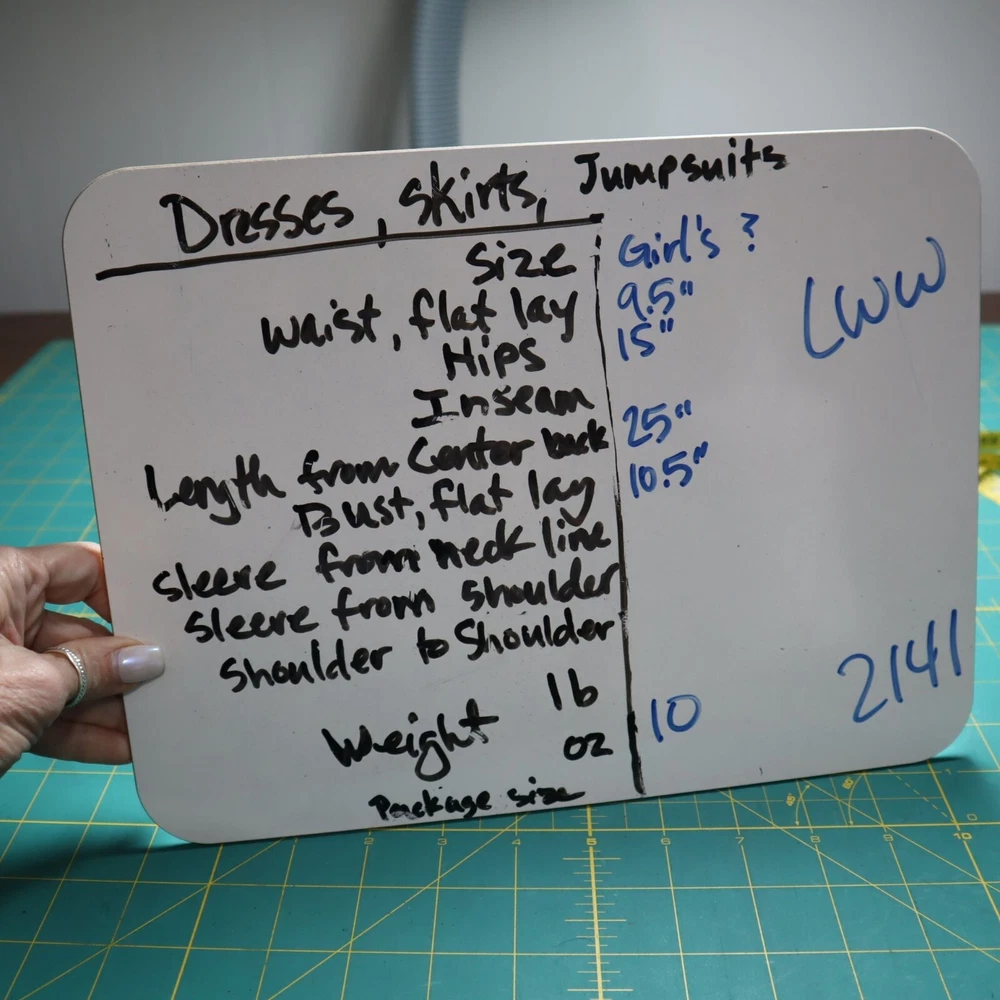 Dresses, Skirts, Jumpsuits
Size Girl's ?
Waist, flat lay 9.5"
Hips 15"
LWW
Inseam
Length from Center back 25"
Bust, flat lay 10.5"
Sleeve from neck line
Sleeve from Shoulder
Shoulder to Shoulder
Weight lb
oz 10
2141
Package size
2 3 4 5 6 7 8 9 10
0